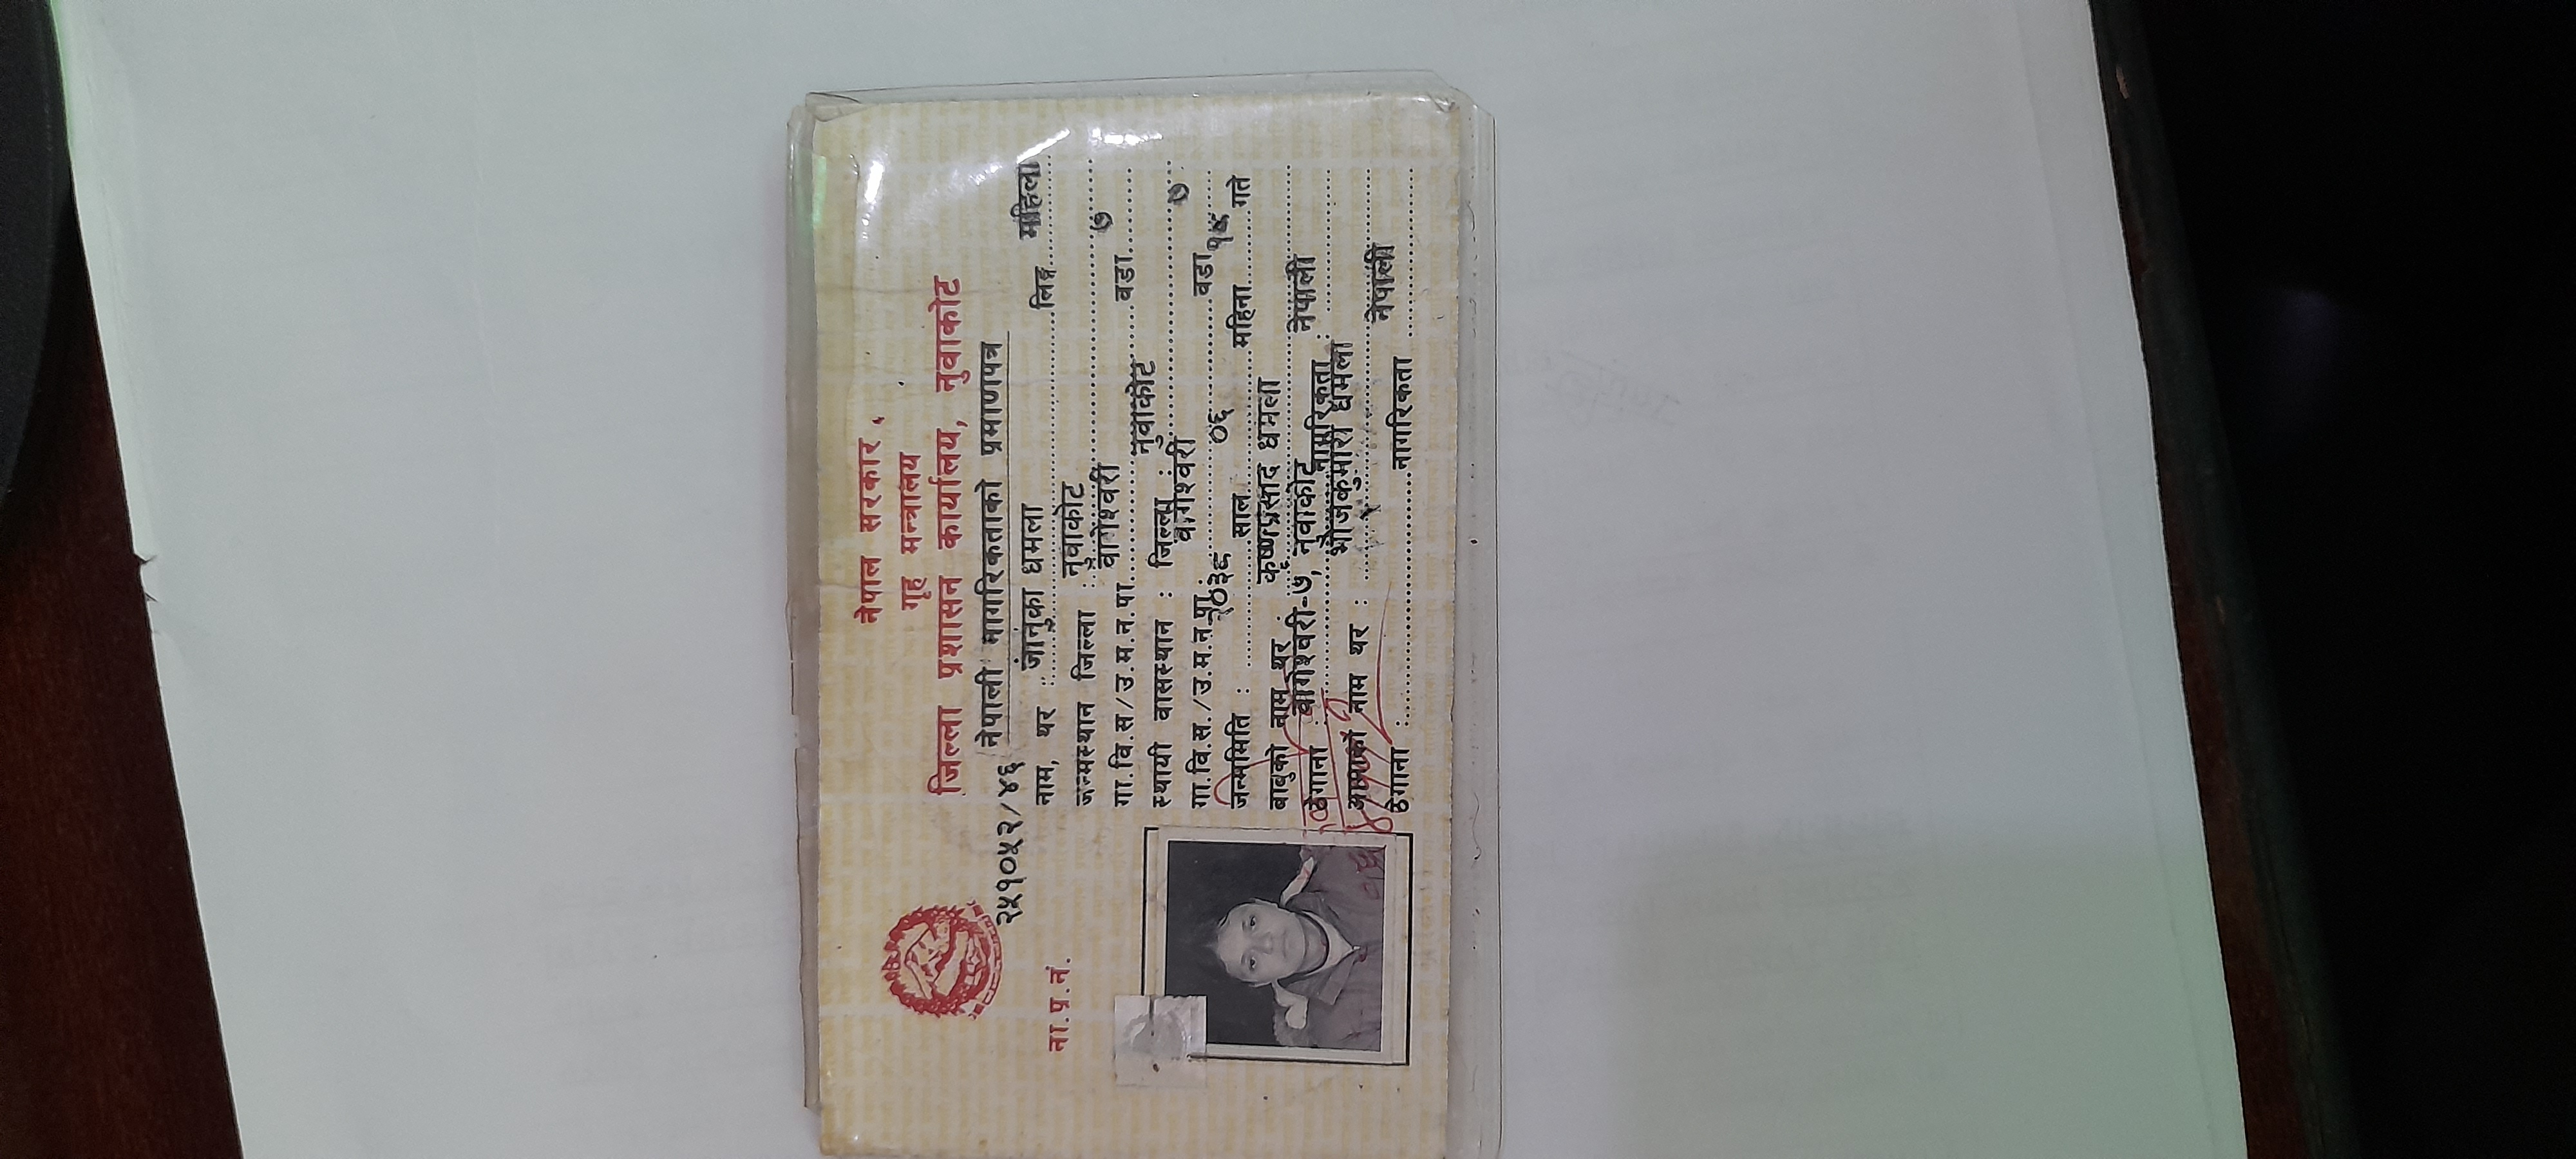 नेपाल सरकार
गृह मन्त्रालय
जिल्ला प्रशासन कार्यालय, नुवाकोट
नेपाली नागरिकताको प्रमाणपत्र
ना.प्र.नं.
२५१०५२/४६
नाम, थर : जानुका धमला लिङ्ग महिला
जन्मस्थान जिल्ला : नुवाकोट
गा.वि.स/उ.म.न.पा. वागेश्वरी वडा ७
स्थायी वासस्थान : जिल्ला : नुवाकोट
गा.वि.स./उ.म.न.पा. वागेश्वरी वडा ७
जन्ममिति : २०३६ साल ०६ महिना १५ गते
बाबुको नाम थर : कृष्णप्रसाद धमला
ठेगाना : वागेश्वरी-७, नुवाकोट नागरिकता : नेपाली
आमाको नाम थर : भोजकुमारी धमला
ठेगाना : नागरिकता नेपाली